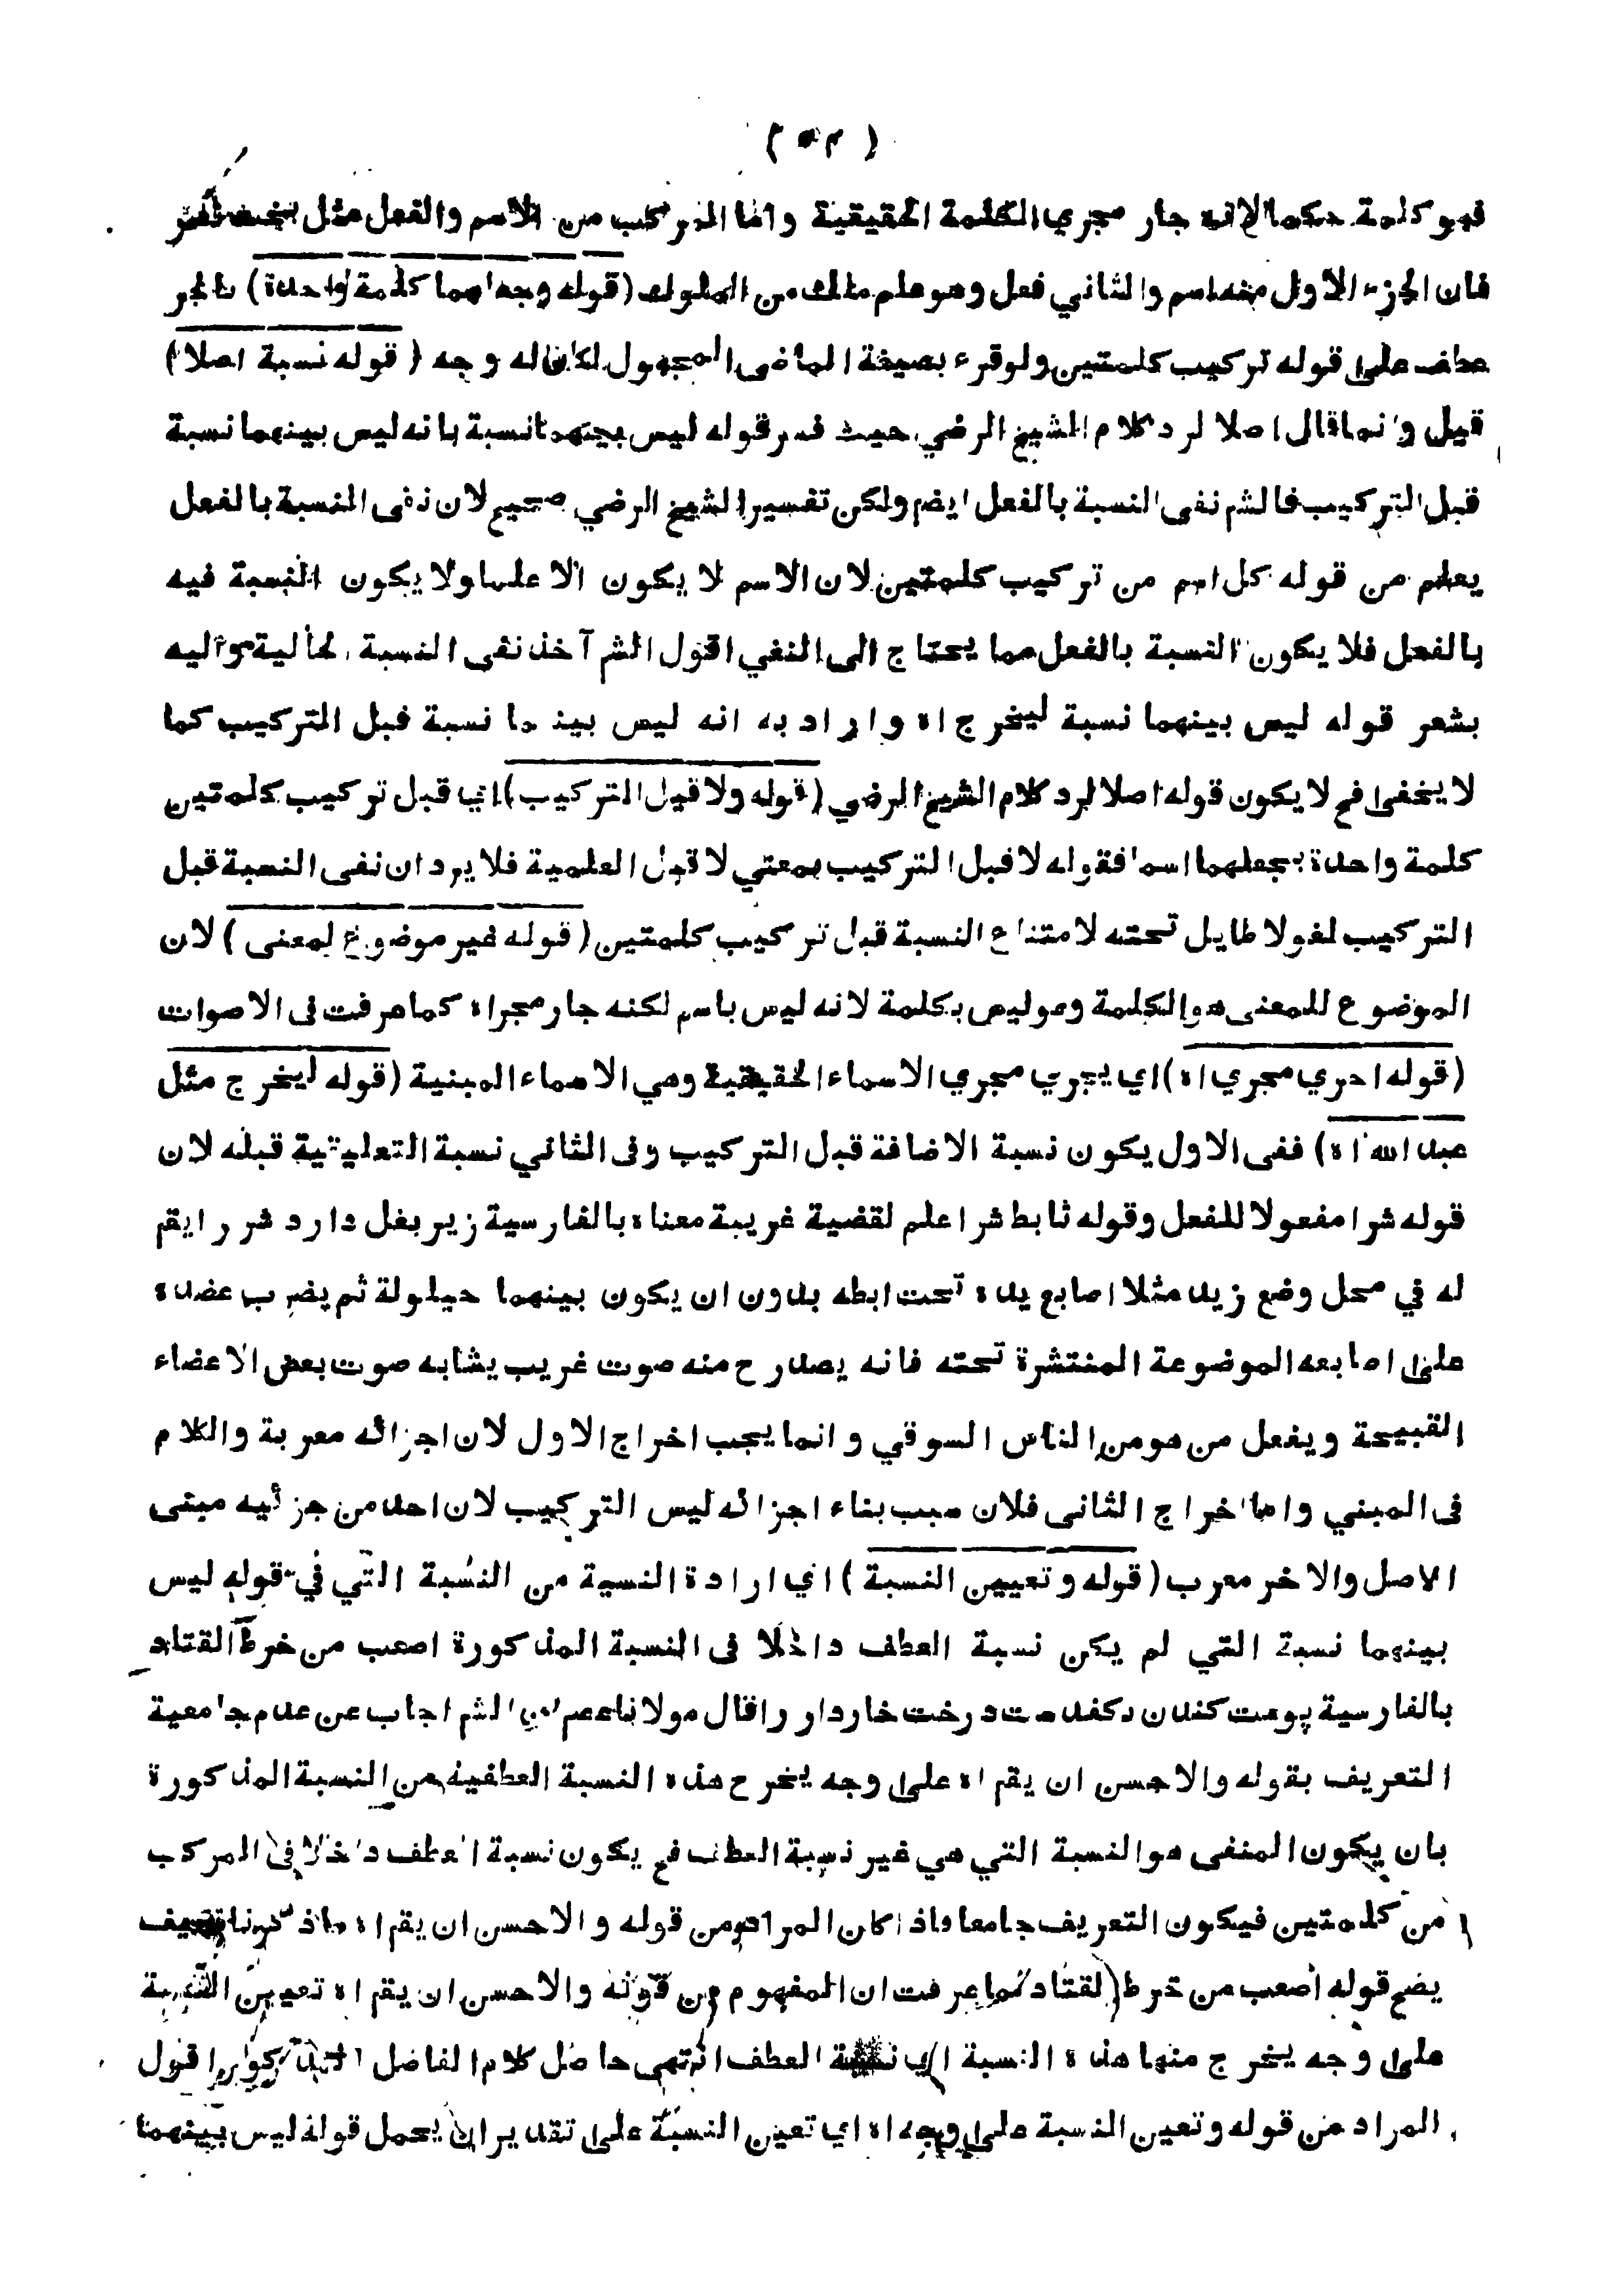 ( ٥٢ )
فهو كلمة حكما لانه جار مجري الكلمة الحقيقية واما المركب من الاسم والفعل مثل بخت نصر
فان الجزء الاول منه اسم والثاني فعل وهو علم ملك من الملوك (قوله وجعلهما كلمة واحدة) بالجر
عطف على قوله تركيب كلمتين ولو قرء بصيغة الماضى المجهول لكان له وجه ( قوله نسبة اصلا )
قيل وانما قال اصلا لرد كلام الشيخ الرضي حيث فسر قوله ليس بينهما نسبة بانه ليس بينهما نسبة
قبل التركيب فالشم نفى النسبة بالفعل ايضم ولكن تفسير الشيخ الرضي صحيح لان نفى النسبة بالفعل
يعلم من قوله كل اسم من تركيب كلمتين لان الاسم لا يكون الا علما ولا يكون النسبة فيه
بالفعل فلا يكون النسبة بالفعل مما يحتاج الى النفي اقول الشم آخذ نفى النسبة
بشعر قوله ليس بينهما نسبة ليخرج اه واراد به انه ليس بينهما نسبة قبل التركيب كما
لا يخفى فح لا يكون قوله اصلا لرد كلام الشيخ الرضي (قوله ولا قبل التركيب) اي قبل تركيب كلمتين
كلمة واحدة بجعلهما اسما فقوله لا قبل التركيب بمعني لا قبل العلمية فلا يرد ان نفى النسبة قبل
التركيب لغو لا طايل تحته لامتناع النسبة قبل تركيب كلمتين ( قوله غير موضوع لمعنى ) لان
الموضوع للمعنى هو الكلمة وهو ليس بكلمة لانه ليس باسم لكنه جار مجراه كما عرفت فى الاصوات
(قوله اجري مجري اه) اي يجري مجري الاسماء الحقيقية وهي الاسماء المبنية (قوله ليخرج مثل
عبد الله اه) ففى الاول يكون نسبة الاضافة قبل التركيب وفى الثاني نسبة التعليقية قبله لان
قوله شرا مفعولا للفعل وقوله تابط شرا علم لقضية غريبة معناه بالفارسية زير بغل دارد شر را يقم
له في محل وضع زيد مثلا اصابع يده تحت ابطه بدون ان يكون بينهما حيلولة ثم يضرب عضده
على اصابعه الموضوعة المنتشرة تحته فانه يصدر ح منه صوت غريب يشابه صوت بعض الاعضاء
القبيحة ويفعل من هو من الناس السوقي وانما يجب اخراج الاول لان اجزائه معربة والكلام
فى المبني واما اخراج الثانى فلان سبب بناء اجزائه ليس التركيب لان احد من جزئيه مبنى
الاصل والاخر معرب ( قوله وتعيين النسبة ) اي ارادة النسبة من النسبة التي في قوله ليس
بينهما نسبة التي لم يكن نسبة العطف داخلا فى النسبة المذكورة اصعب من خرط القتاد
بالفارسية پوست كندن دكفدست درخت خاردار را قال مولانا عصم الشم اجاب عن عدم جامعية
التعريف بقوله والاحسن ان يقم اه على وجه يخرج هذه النسبة العطفية من النسبة المذكورة
بان يكون المنفى هو النسبة التي هي غير نسبة العطف فح يكون نسبة العطف داخلا فى المركب
من كلمتين فيكون التعريف جامعا واذا كان المراد من قوله والاحسن ان يقم اه ماذكرنا فكيف
يضح قوله اصعب من خرط القتاد كما عرفت ان المفهوم من قوله والاحسن ان يقم اه تعيين النسبة
على وجه يخرج منها هذه النسبة اي نسبة العطف انتهى حاصل كلام الفاضل المذكور اقول
المراد من قوله وتعين النسبة على وجه اه اي تعين النسبة على تقدير ان يحمل قوله ليس بينهما